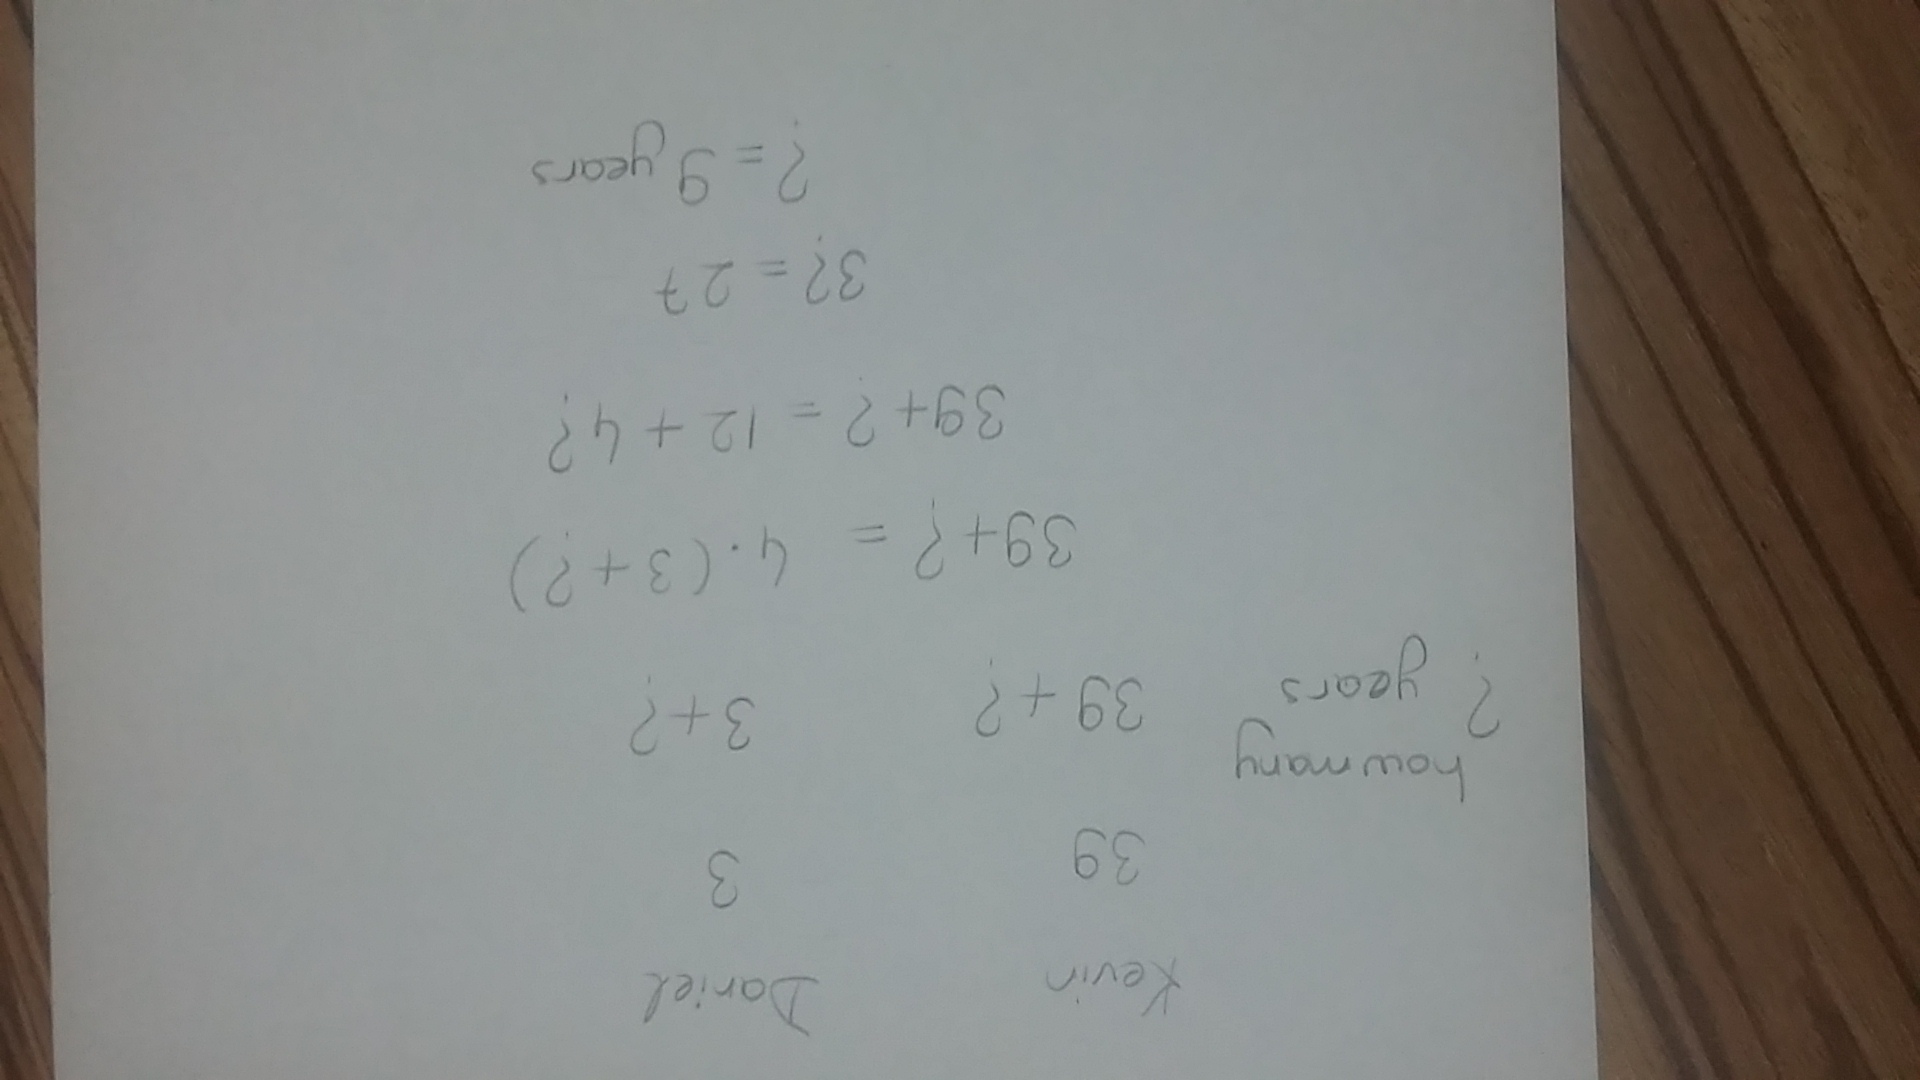 Kevin Daniel
39 3
how many
? years 39+? 3+?
39+? = 4·(3+?)
39+? = 12+4?
3? = 27
? = 9 years